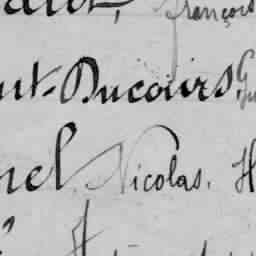 françois
ut-Ducours,
nel, Nicolas. H